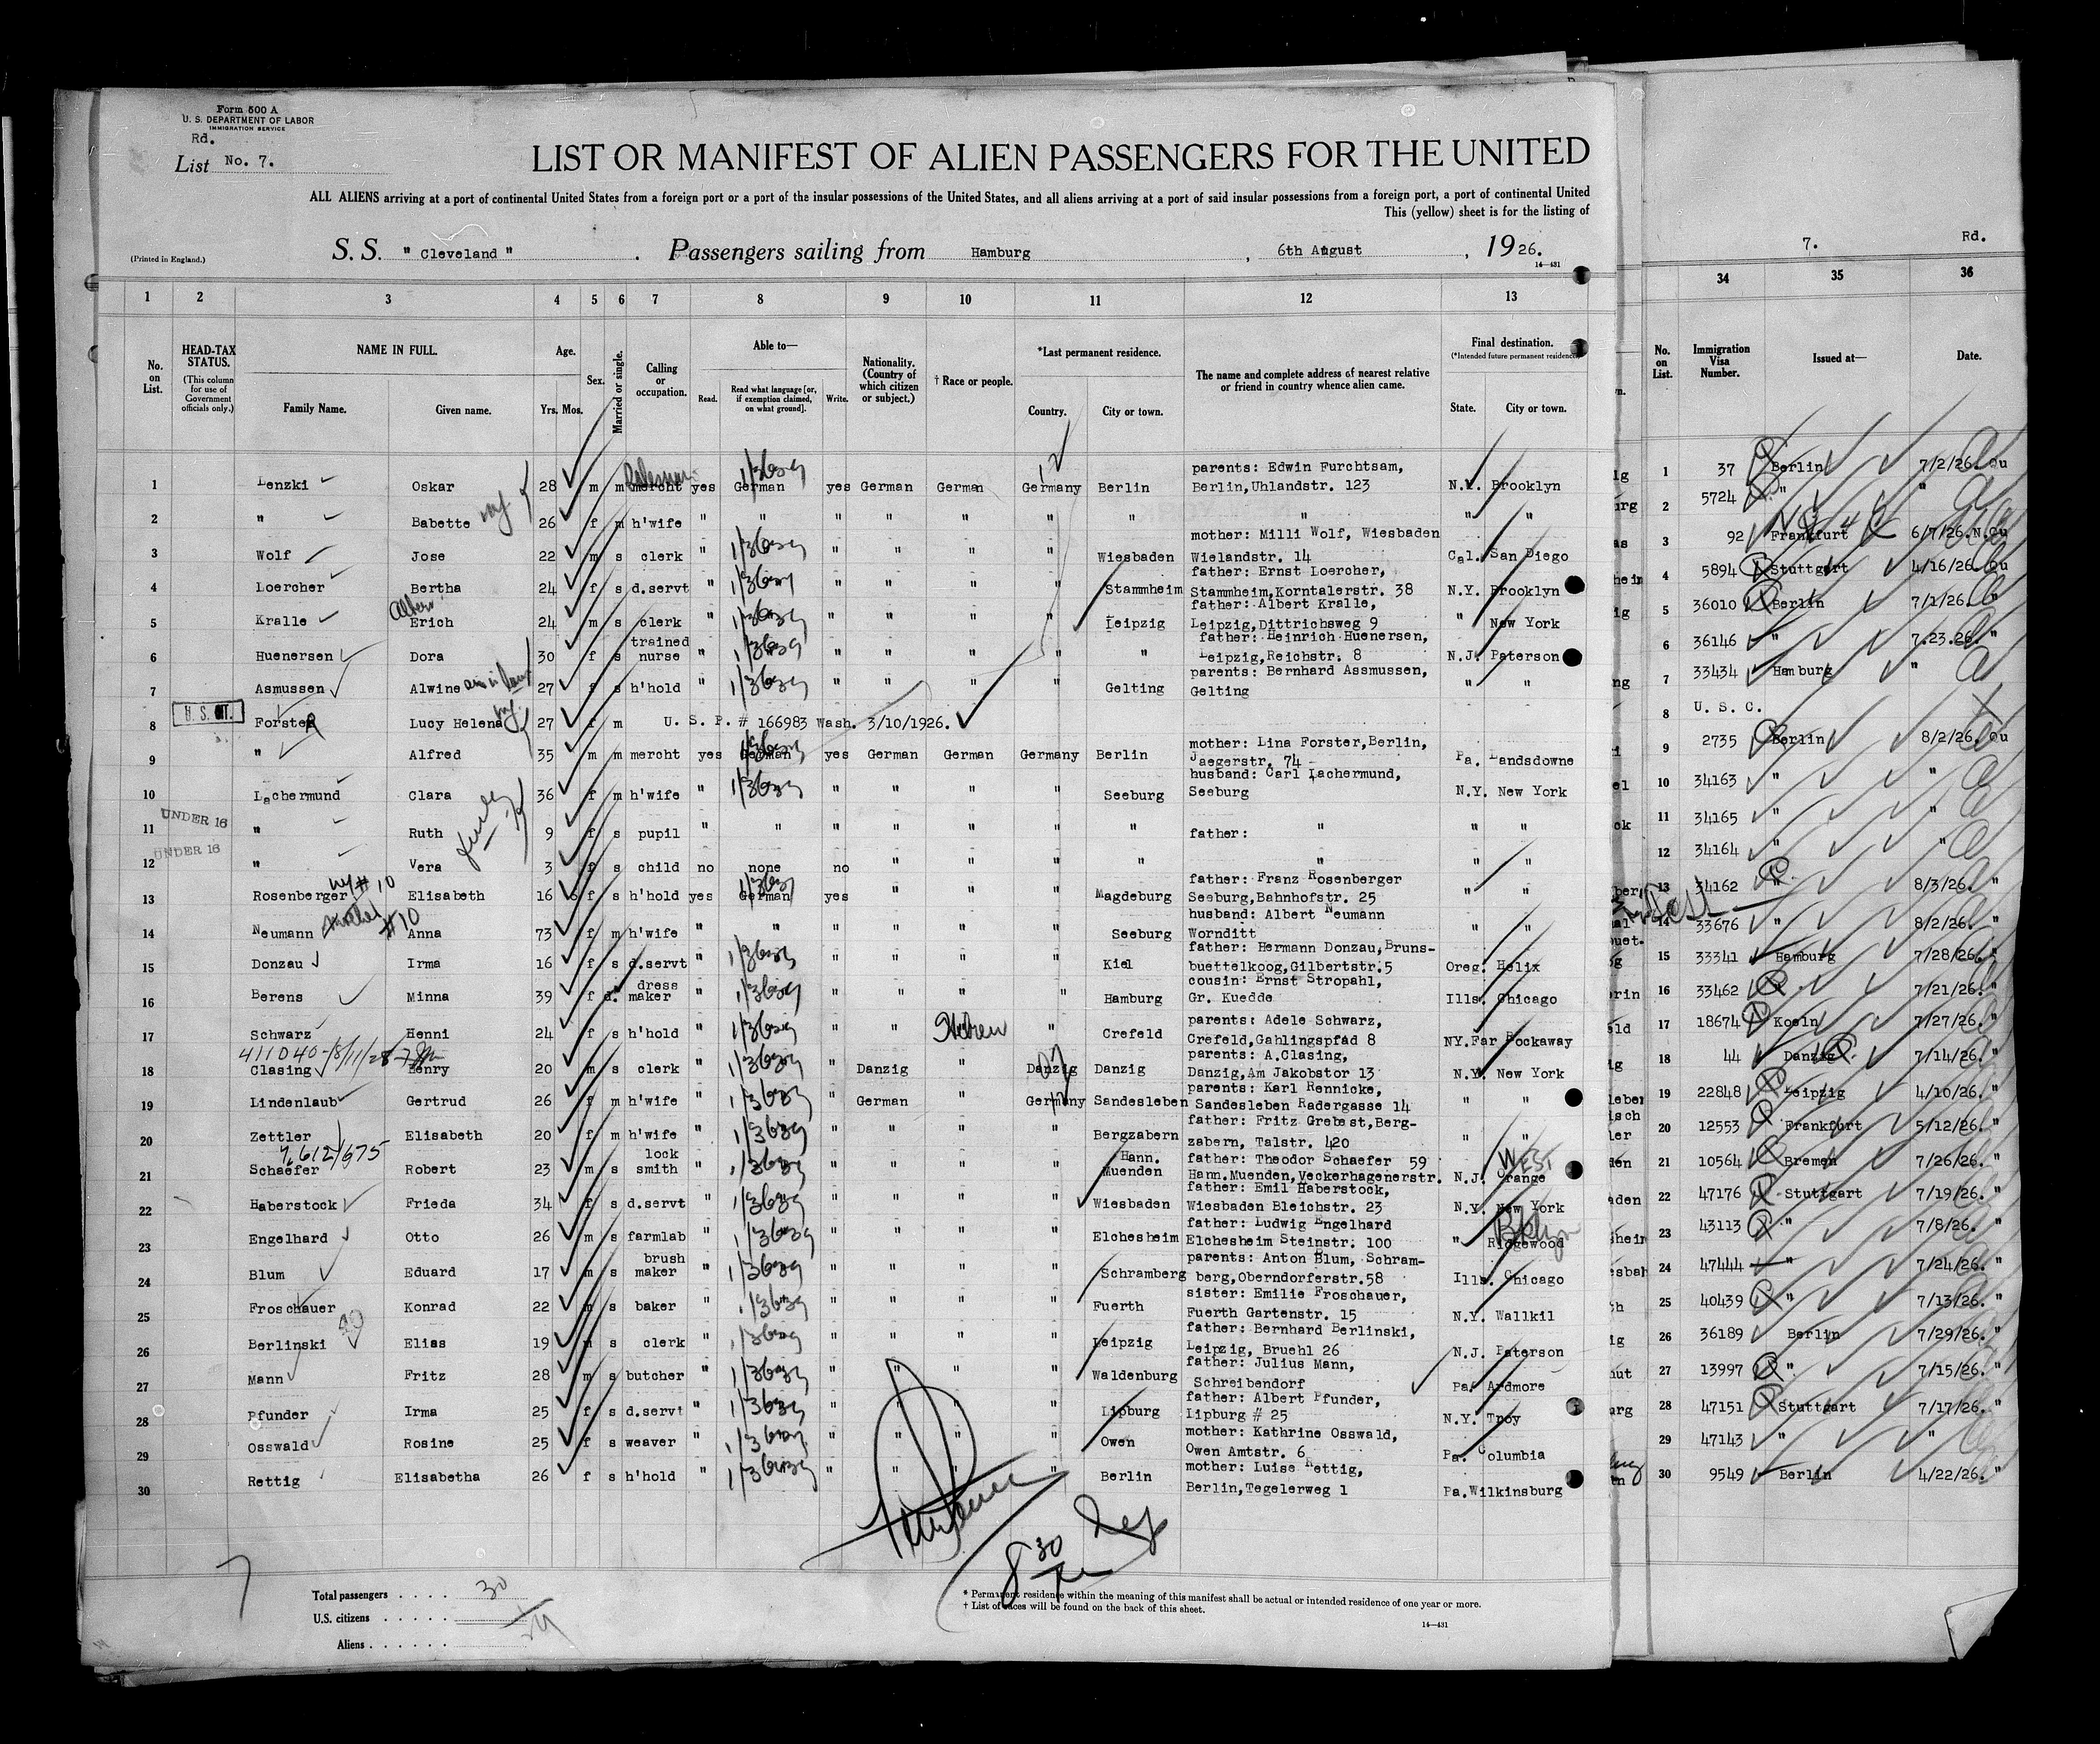 Form 500 A
U. S. DEPARTMENT OF LABOR
IMMIGRATION SERVICE
Rd.
List No. 7.
LIST OR MANIFEST OF ALIEN PASSENGERS FOR THE UNITED
ALL ALIENS arriving at a port of continental United States from a foreign port or a port of the insular possessions of the United States, and all aliens arriving at a port of said insular possessions from a foreign port, a port of continental United
This (yellow) sheet is for the listing of
(Printed in England.)
S. S. " Cleveland " . Passengers sailing from Hamburg , 6th August , 1926.
14—431
7. Rd.
1 2 3 4 5 6 7 8 9 10 11 12 13 34 35 36
No. on List.
HEAD-TAX STATUS.
(This column for use of Government officials only.)
NAME IN FULL.
Family Name. Given name.
Age.
Yrs. Mos.
Sex.
Married or single.
Calling or occupation.
Able to—
Read. Read what language [or, if exemption claimed, on what ground]. Write.
Nationality. (Country of which citizen or subject.)
† Race or people.
*Last permanent residence.
Country. City or town.
The name and complete address of nearest relative or friend in country whence alien came.
Final destination.
(*Intended future permanent residence)
State. City or town.
No. on List.
Immigration Visa Number.
Issued at—
Date.
parents: Edwin Furchtsam,
1 Lenzki Oskar 28 m m mercht yes German yes German German Germany Berlin Berlin,Uhlandstr. 123 N.Y. Brooklyn 1 37 Berlin 7/2/26. Qu
2 " Babette 26 f m h'wife " " " " " " " " " " 2 5724 " "
mother: Milli Wolf, Wiesbaden
3 Wolf Jose 22 m s clerk " " " " " Wiesbaden Wielandstr. 14 Cal. San Diego 3 92 Frankfurt 6/7/26.N.Qu
father: Ernst Loercher,
4 Loercher Bertha 24 f s d.servt " " " " " Stammheim Stammheim,Korntalerstr. 38 N.Y. Brooklyn 4 5894 Stuttgart 4/16/26. Qu
father: Albert Kralle,
5 Kralle Erich 24 m s clerk " " " " " Leipzig Leipzig,Dittrichsweg 9 " New York 5 36010 Berlin 7/1/26. "
trained father: Heinrich Huenersen,
6 Huenersen Dora 30 f s nurse " " " " " " Leipzig,Reichstr. 8 N.J. Paterson 6 36146 " 7.23.26. "
parents: Bernhard Assmussen,
7 Asmussen Alwine 27 f s h'hold " " " " " Gelting Gelting " " 7 33434 Hamburg "
U. S. CIT.
8 Forster Lucy Helena 27 f m U. S. P. # 166983 Wash. 3/10/1926. 8 U. S. C.
mother: Lina Forster,Berlin,
9 " Alfred 35 m m mercht yes German yes German German Germany Berlin Jaegerstr. 74 Pa. Landsdowne 9 2735 Berlin 8/2/26. Qu
husband: Carl Lachermund,
10 Lachermund Clara 36 f m h'wife " " " " " Seeburg Seeburg N.Y. New York 10 34163 " " "
UNDER 16
11 " Ruth 9 f s pupil " " " " " " " father: " " " 11 34165 " " "
UNDER 16
12 " Vera 3 f s child no none no " " " " " " " 12 34164 " " "
father: Franz Rosenberger
13 Rosenberger Elisabeth 16 f s h'hold yes German yes " " " Magdeburg Seeburg,Bahnhofstr. 25 " " 13 34162 " 8/3/26. "
#10
husband: Albert Neumann
14 Neumann Anna 73 f m h'wife " " " " " " Seeburg Wornditt " " 14 33676 " 8/2/26. "
father: Hermann Donzau,Bruns-
15 Donzau Irma 16 f s d.servt " " " " " Kiel buettelkoog,Gilbertstr.5 Oreg. Helix 15 33341 Hamburg 7/28/26. "
dress cousin: Ernst Stropahl,
16 Berens Minna 39 f d. maker " " " " " Hamburg Gr. Kuedde Ills. Chicago 16 33462 " 7/21/26. "
parents: Adele Schwarz,
17 Schwarz Henni 24 f s h'hold " " " Hebrew " Crefeld Crefeld,Gahlingspfad 8 NY.Far Rockaway 17 18674 Koeln 7/27/26. "
parents: A.Clasing,
18 Clasing Henry 20 m s clerk " " Danzig " Danzig Danzig Danzig,Am Jakobstor 13 N.Y. New York 18 44 Danzig 7/14/26. "
parents: Karl Rennicke,
19 Lindenlaub Gertrud 26 f m h'wife " " German " Germany Sandesleben Sandesleben Radergasse 14 " " 19 22848 Leipzig 4/10/26. "
father: Fritz Grebest,Berg-
20 Zettler Elisabeth 20 f m h'wife " " " " " Bergzabern zabern, Talstr. 420 " " 20 12553 Frankfurt 5/12/26. "
lock Hann. father: Theodor Schaefer 59 WEST
21 Schaefer Robert 23 m s smith " " " " " Muenden Hann.Muenden,Veckerhagenerstr. N.J. Orange 21 10564 Bremen 7/26/26. "
father: Emil Haberstock,
22 Haberstock Frieda 34 f s d.servt " " " " " Wiesbaden Wiesbaden Bleichstr. 23 N.Y. New York 22 47176 Stuttgart 7/19/26. "
father: Ludwig Engelhard Bklyn
23 Engelhard Otto 26 m s farmlab " " " " " Elchesheim Elchesheim Steinstr. 100 " Ridgewood 23 43113 " 7/8/26. "
brush parents: Anton Blum, Schram-
24 Blum Eduard 17 m s maker " " " " " Schramberg berg,Oberndorferstr.58 Ills. Chicago 24 47444 " 7/24/26. "
sister: Emilie Froschauer,
25 Froschauer Konrad 22 m s baker " " " " " Fuerth Fuerth Gartenstr. 15 N.Y. Wallkil 25 40439 " 7/13/26. "
father: Bernhard Berlinski,
26 Berlinski Elias 19 m s clerk " " " " " Leipzig Leipzig, Bruehl 26 N.J. Paterson 26 36189 Berlin 7/29/26. "
father: Julius Mann,
27 Mann Fritz 28 m s butcher " " " " " Waldenburg Schreibendorf Pa. Ardmore 27 13997 " 7/15/26. "
father: Albert Pfunder,
28 Pfunder Irma 25 f s d.servt " " " " " Lipburg Lipburg # 25 N.Y. Troy 28 47151 Stuttgart 7/17/26. "
mother: Kathrine Osswald,
29 Osswald Rosine 25 f s weaver " " " " " Owen Owen Amtstr. 6 Pa. Columbia 29 47143 " " "
mother: Luise Rettig,
30 Rettig Elisabetha 26 f s h'hold " " " " " Berlin Berlin,Tegelerweg 1 Pa.Wilkinsburg 30 9549 Berlin 4/22/26. "
7
8 30
Total passengers . . . . 30
U.S. citizens . . . . .
Aliens . . . . . .
* Permanent residence within the meaning of this manifest shall be actual or intended residence of one year or more.
† List of races will be found on the back of this sheet.
14—431